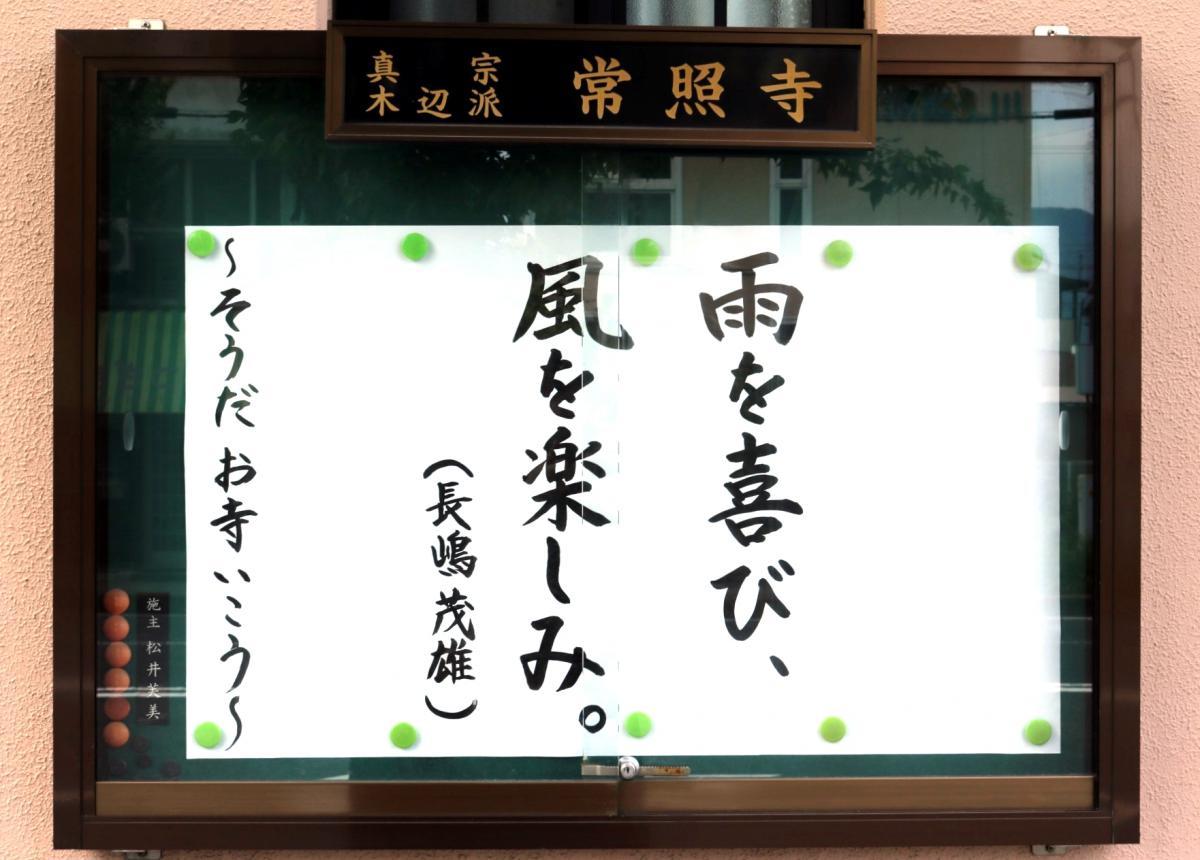 真宗
木辺派
常照寺
雨を喜び、
風を楽しみ。
（長嶋茂雄）
～そうだ お寺 いこう～
施主 松井芙美